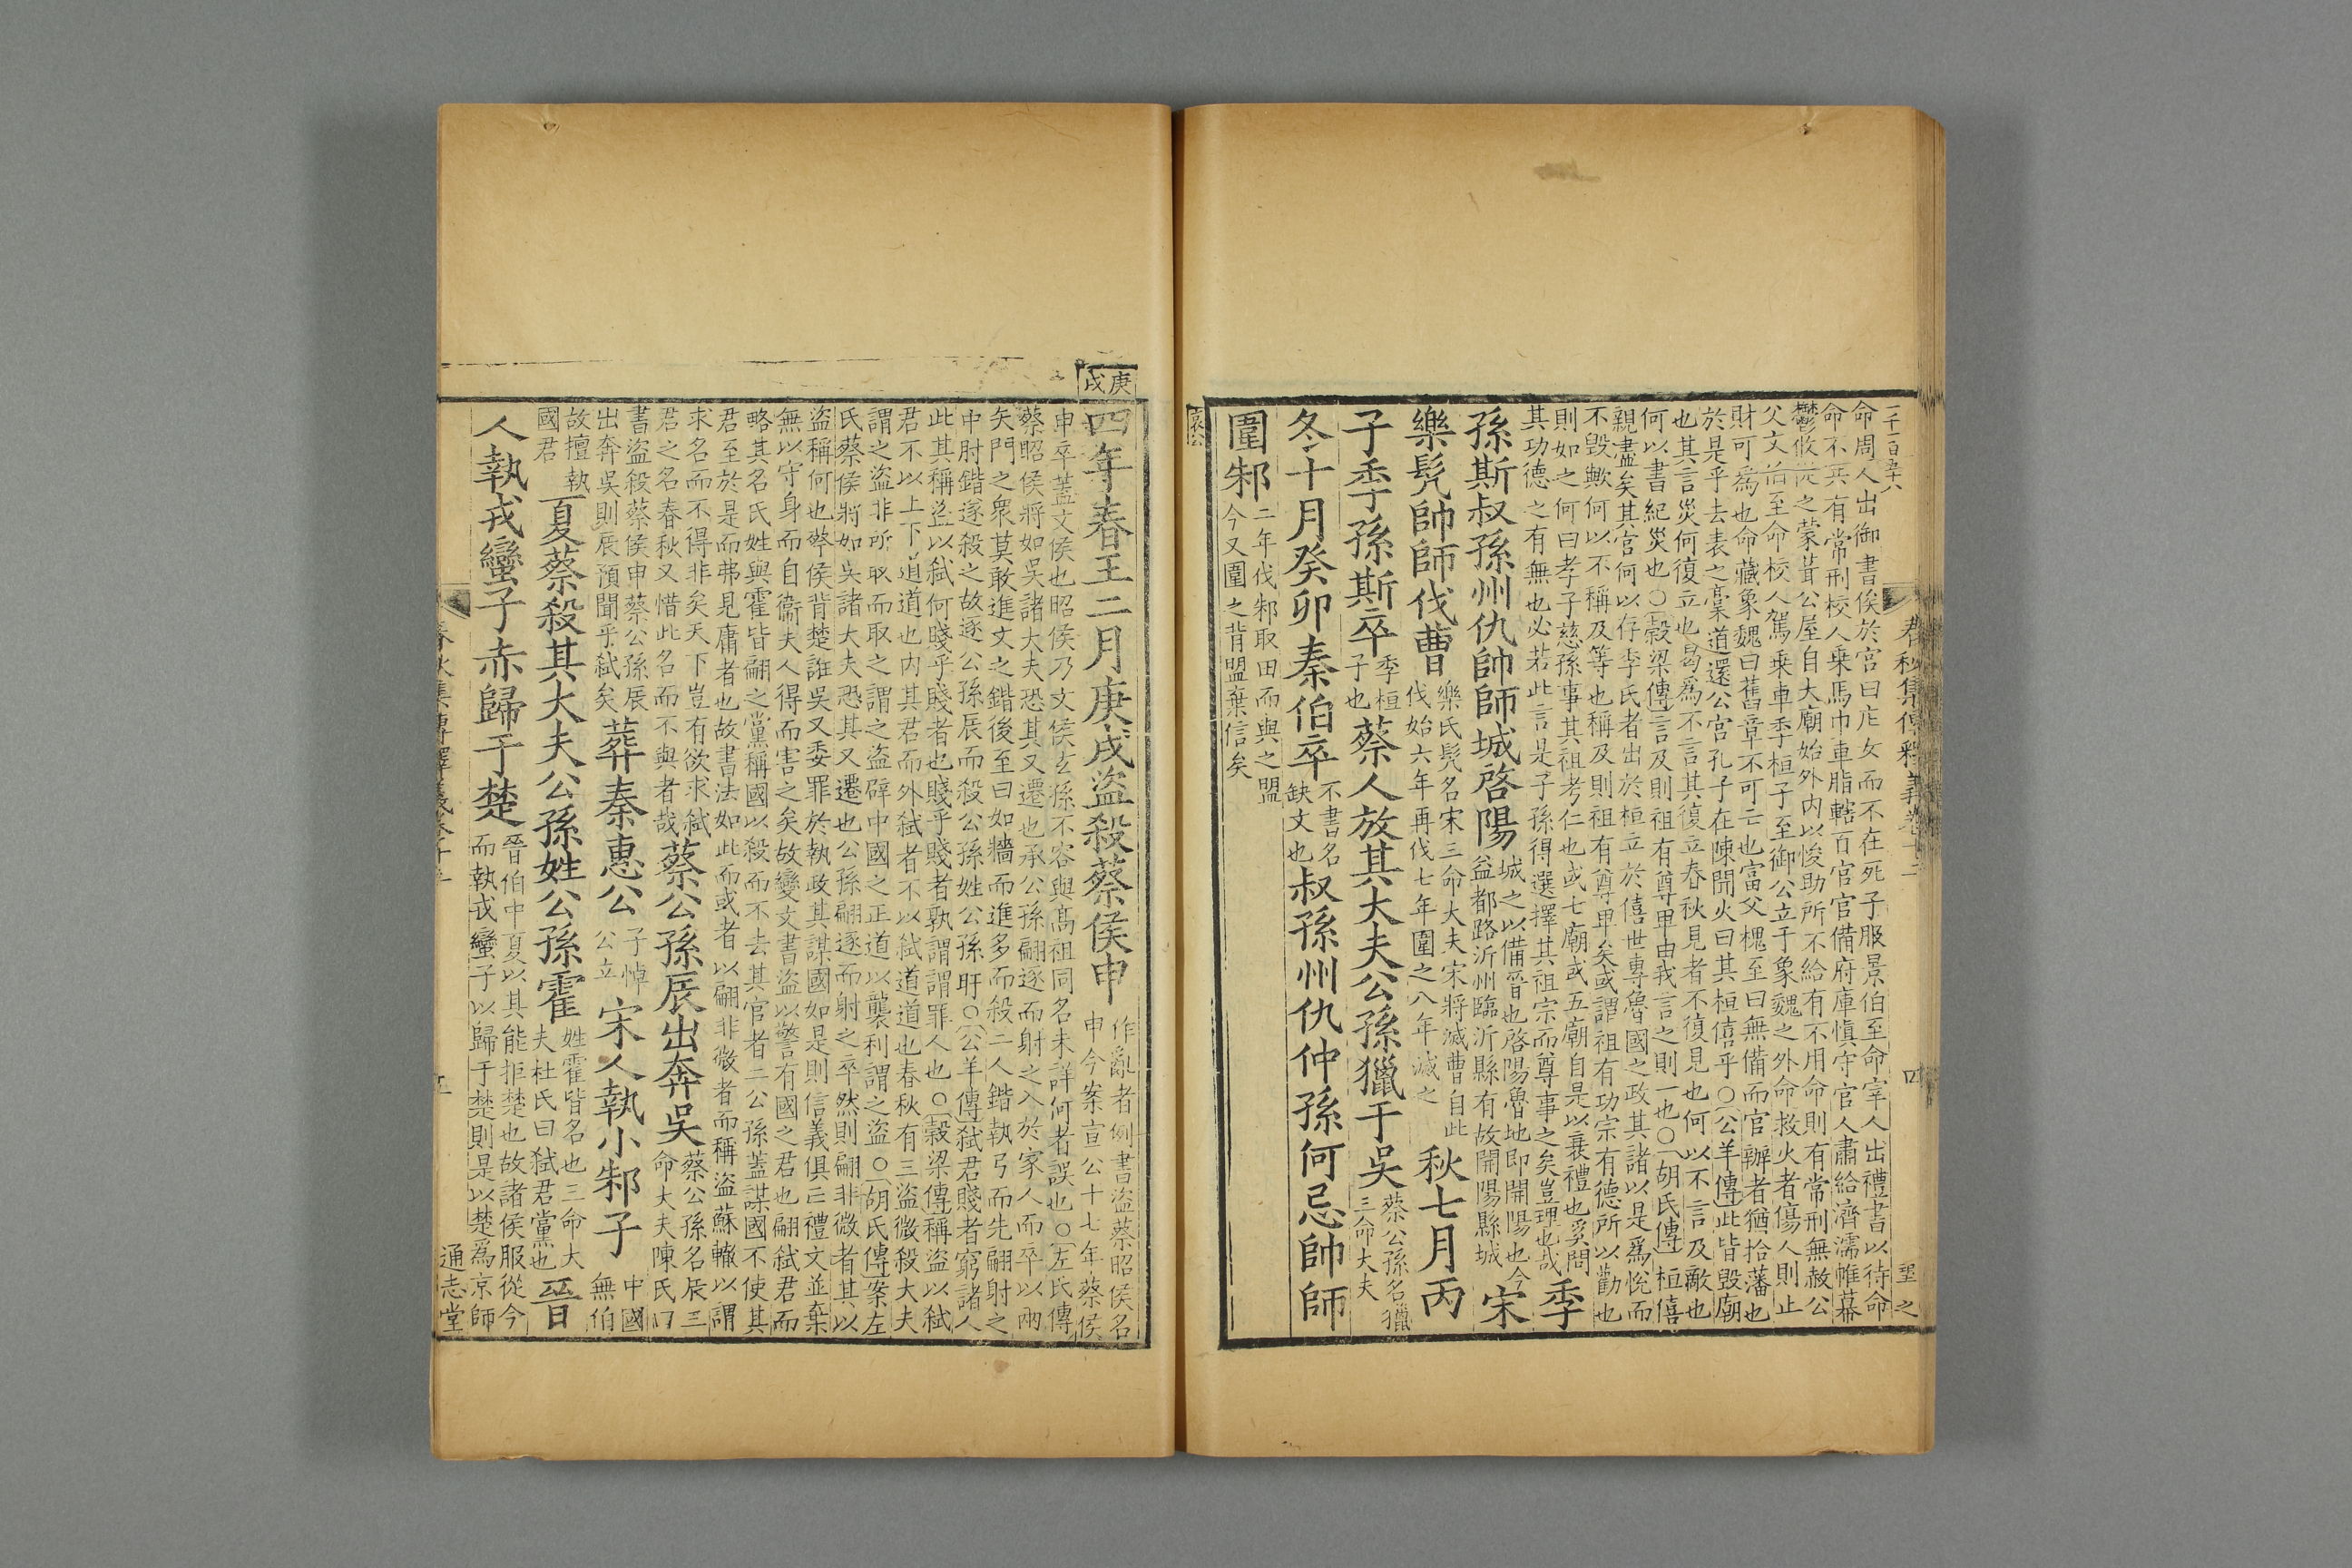 命周人出御書俟於宮曰庀女而不在死子服景伯至命宰人出禮書以待命
命不共有常刑校人乗馬巾車脂轄百官官備府庫慎守官人肅給濟濡帷幕
鬱攸從之蒙葺公屋自大廟始外内以悛助所不給有不用命則有常刑無赦公
父文伯至命校人駕乗車季桓子至御公立于象魏之外命救火者傷人則止
財可為也命藏象魏曰舊章不可亡也富父槐至曰無備而官辦者猶拾藩也
於是乎去表之槀道還公宮孔子在陳聞火曰其桓僖乎○公羊傳此皆毀廟
也其言災何復立也曷為不言其復立春秋見者不復見也何以不言及敵也
何以書紀災也○穀梁傳言及則祖有尊卑由我言之則一也○胡氏傳桓僖
親盡矣其宮何以存季氏者出於桓立於僖世專魯國之政其諸以是爲恱而
不毀歟何以不稱及等也稱及則祖有尊卑矣或謂祖有功宗有德所以勸也
則如之何曰孝子慈孫事其祖考仁也或七廟或五廟自是以衰禮也奚問
其功德之有無也必若此言是子孫得選擇其祖宗而尊事之矣豈理也哉
季
孫斯叔孫州仇帥師城啓陽
城之以備晉也啓陽魯地即開陽也今
益都路沂州臨沂縣有故開陽縣城
宋
樂髡帥師伐曹
樂氏髡名宋三命大夫宋將滅曹自此
伐始六年再伐七年圍之八年滅之
秋七月丙
子季孫斯卒
季桓
子也
蔡人放其大夫公孫獵于吳
蔡公孫名獵
三命大夫
冬十月癸卯秦伯卒
不書名
缺文也
叔孫州仇仲孫何忌帥師
圍邾
二年伐邾取田而與之盟
今又圍之背盟棄信矣
哀公
庚戌
四年春王二月庚戌盜殺蔡侯申
作亂者例書盜蔡昭侯名
申今案宣公十七年蔡侯
申卒蓋文侯也昭侯乃文侯玄孫不容與髙祖同名未詳何者誤也○左氏傳
蔡昭侯將如吳諸大夫恐其又遷也承公孫翩逐而射之入於家人而卒以兩
矢門之衆莫敢進文之鍇後至曰如牆而進多而殺二人鍇執弓而先翩射之
中肘鍇遂殺之故逐公孫辰而殺公孫姓公孫盱○公羊傳弑君賤者窮諸人
此其稱盜以弑何賤乎賤者也賤乎賤者孰謂謂罪人也○穀梁傳稱盜以弑
君不以上下道道也内其君而外弑者不以弑道道也春秋有三盜微殺大夫
謂之盜非所取而取之謂之盜辟中國之正道以襲利謂之盜○胡氏傳案左
氏蔡侯將如吳諸大夫恐其又遷也公孫翩逐而射之卒然則翩非微者其以
盜稱何也蔡侯背楚誑吳又委罪於執政其謀國如是則信義俱亡禮文並棄
無以守身而自衞夫人得而害之矣故變文書盜以警有國之君也翩弑君而
略其名氏姓與霍皆翩之黨稱國以殺而不去其官者二公孫蓋謀國不使其
君至於是而弗見庸者也故書法如此而或者以翩非微者而稱盜蘇轍以謂
求名而不得非矣天下豈有欲求弑
君之名春秋又惜此名而不與者哉
蔡公孫辰出奔吳
蔡公孫名辰三
命大夫陳氏曰
書盜殺蔡侯申蔡公孫辰
出奔吳則辰預聞乎弑矣
葬秦惠公
子悼
公立
宋人執小邾子
中國
無伯
故擅執
國君
夏蔡殺其大夫公孫姓公孫霍
姓霍皆名也三命大
夫杜氏曰弑君黨也
晉
人執戎蠻子赤歸于楚
晉伯中夏以其能拒楚也故諸侯服從今
而執戎蠻子以歸于楚則是以楚爲京師
通志堂